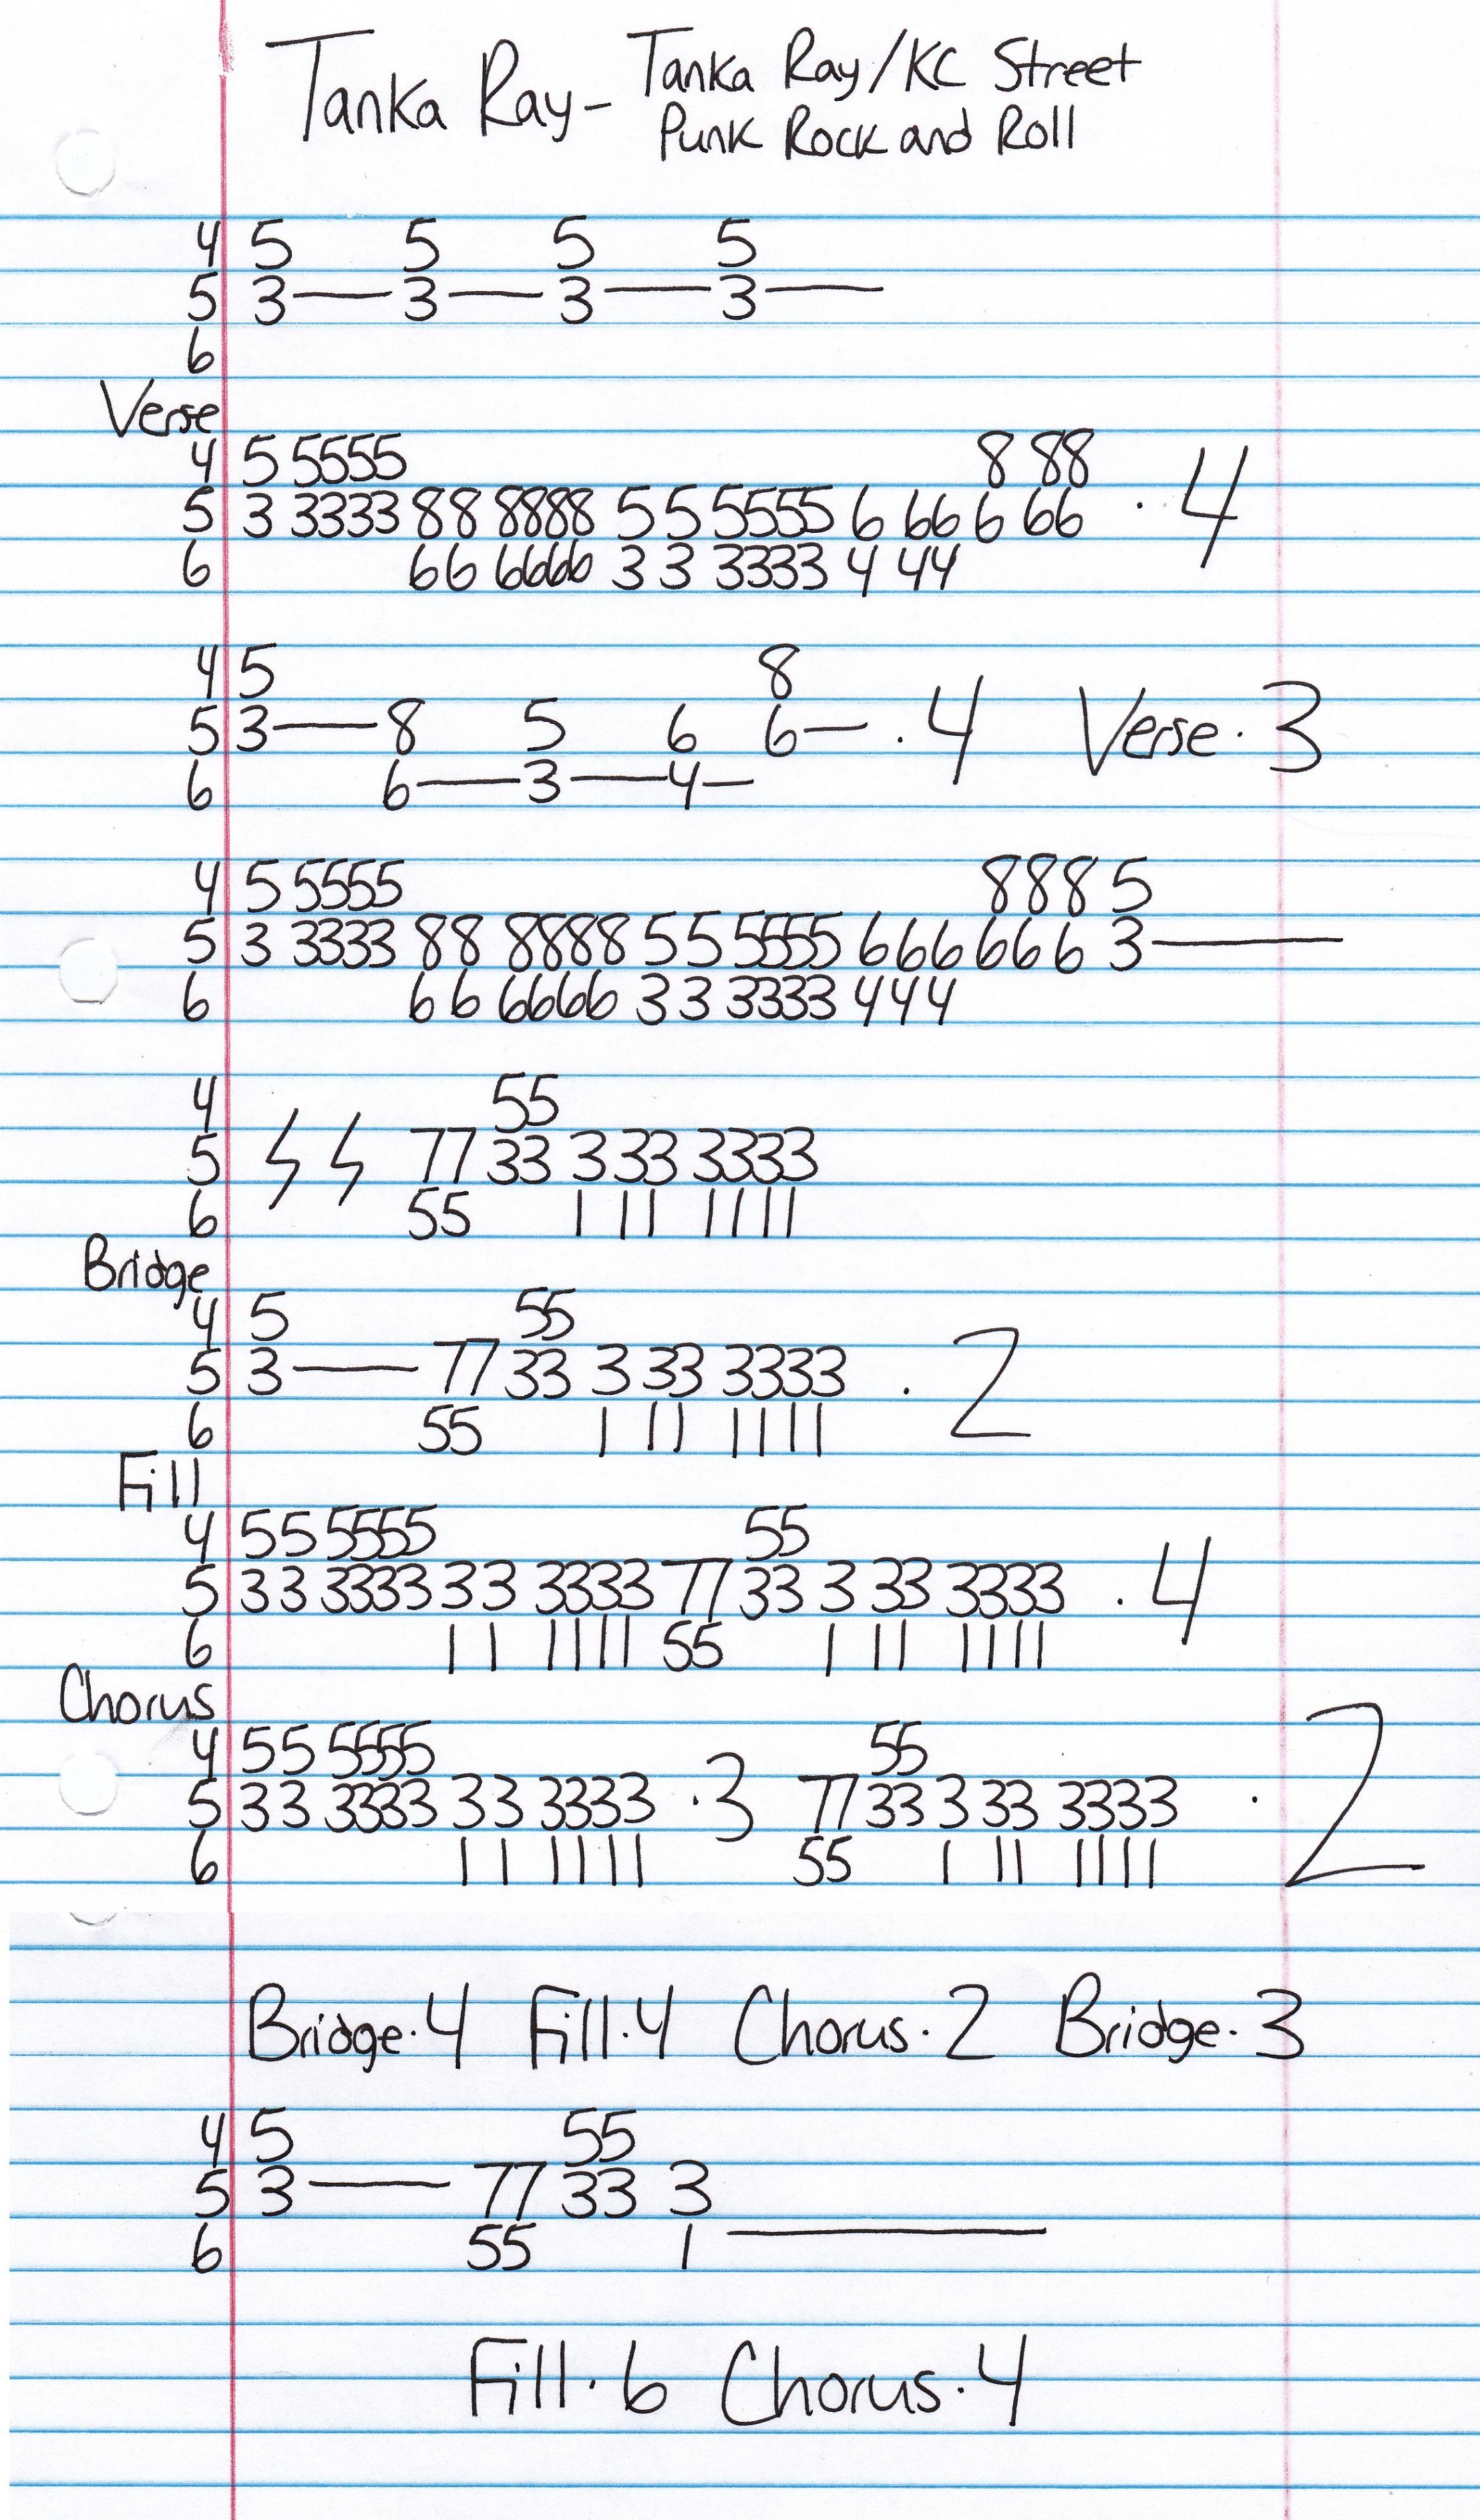 Tanka Ray- Tanka Ray/KC Street
Punk Rock and Roll
4 5 5 5 5
5 3—3—3—3—
6
Verse
4 5 5555 8 88
5 3 3333 88 8888 5 5 5555 6 66 6 66 · 4
6 66 6666 3 3 3333 4 44
4 5 8
5 3—8 5 6 6— · 4 Verse · 3
6 6—3—4—
4 5 5555 8 8 8 5
5 3 3333 88 8888 5 5 5555 6 6 6 6 6 6 3—
6 6 6 6666 3 3 3333 4 4 4
4 55
5 77 33 3 33 3333
6 55 1 11 1111
Bridge
4 5 55
5 3—77 33 3 33 3333 · 2
6 55 1 11 1111
Fill
4 55 5555 55
5 33 3333 33 3333 77 33 3 33 3333 · 4
6 11 1111 55 1 11 1111
Chorus
4 55 5555 55
5 33 3333 33 3333 · 3 77 33 3 33 3333 · 2
6 11 1111 55 1 11 1111
Bridge · 4 Fill · 4 Chorus · 2 Bridge · 3
4 5 55
5 3—77 33 3
6 55 1—
Fill · 6 Chorus · 4